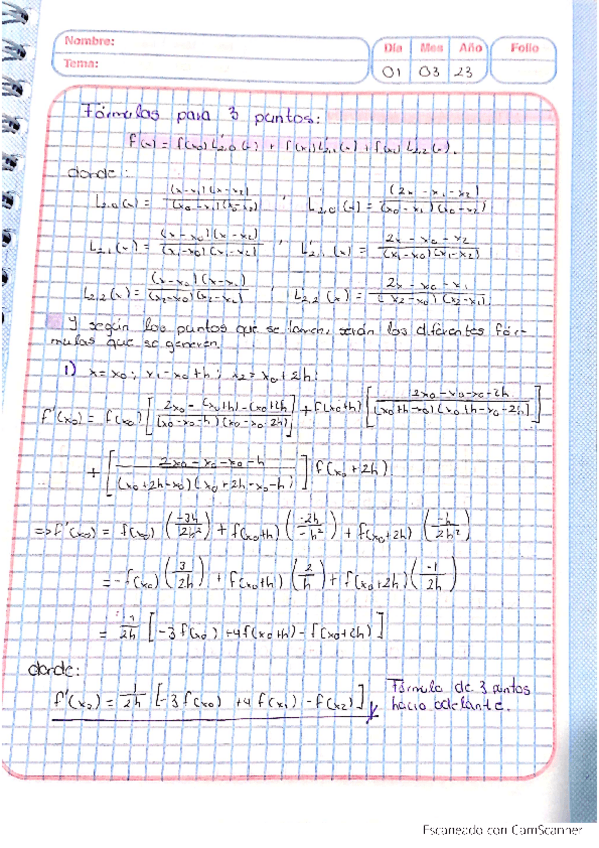 Nombre:
Tema:
Día Mes Año Folio
01 03 23
Fórmulas para 3 puntos:
f'(x) = f(x₀) L'₂,₀(x) + f(x₁) L'₂,₁(x) + f(x₂) L'₂,₂(x).
donde:
L₂,₀(x) = (x-x₁)(x-x₂) / (x₀-x₁)(x₀-x₂) , L'₂,₀(x) = (2x-x₁-x₂) / (x₀-x₁)(x₀-x₂)
L₂,₁(x) = (x-x₀)(x-x₂) / (x₁-x₀)(x₁-x₂) , L'₂,₁(x) = 2x-x₀-x₂ / (x₁-x₀)(x₁-x₂)
L₂,₂(x) = (x-x₀)(x-x₁) / (x₂-x₀)(x₂-x₂) , L'₂,₂(x) = 2x-x₀-x₁ / (x₂-x₀)(x₂-x₁)
Y según los puntos que se tomen, serán los diferentes fór-
mulas que se generen.
1) x = x₀ ; x₁ = x₀+h ; x₂ = x₀+2h :
f'(x₀) = f(x₀) [2x₀-(x₀+h)-(x₀+2h) / (x₀-x₀-h)(x₀-x₀-2h)] + f(x₀+h) [2x₀-x₀-x₀-2h / (x₀+h-x₀)(x₀+h-x₀-2h)]
+ [2x₀-x₀-x₀-h / (x₀+2h-x₀)(x₀+2h-x₀-h)] f(x₀+2h)
=> f'(x₀) = f(x₀) (-3h/2h²) + f(x₀+h) (-2h/-h²) + f(x₀+2h) (-h/2h²)
= -f(x₀) (3/2h) + f(x₀+h) (2/h) + f(x₀+2h) (-1/2h)
= 1/2h [-3f(x₀) + 4f(x₀+h) - f(x₀+2h)]
donde:
f'(x₂) = 1/2h [-3f(x₀) + 4f(x₁) - f(x₂)]
Fórmula de 3 puntos
hacia adelante.
Escaneado con CamScanner